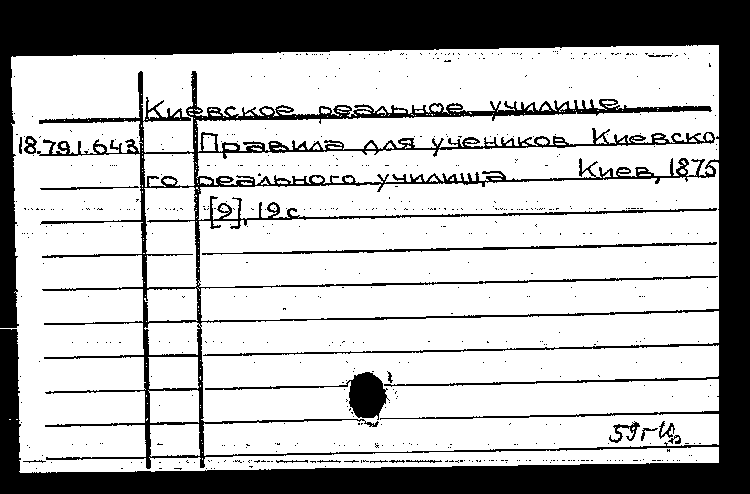 Киевское реальное училище.
18.791.643 Правила для учеников Киевско-
го реального училища. Киев, 1875
[9], 19 с.